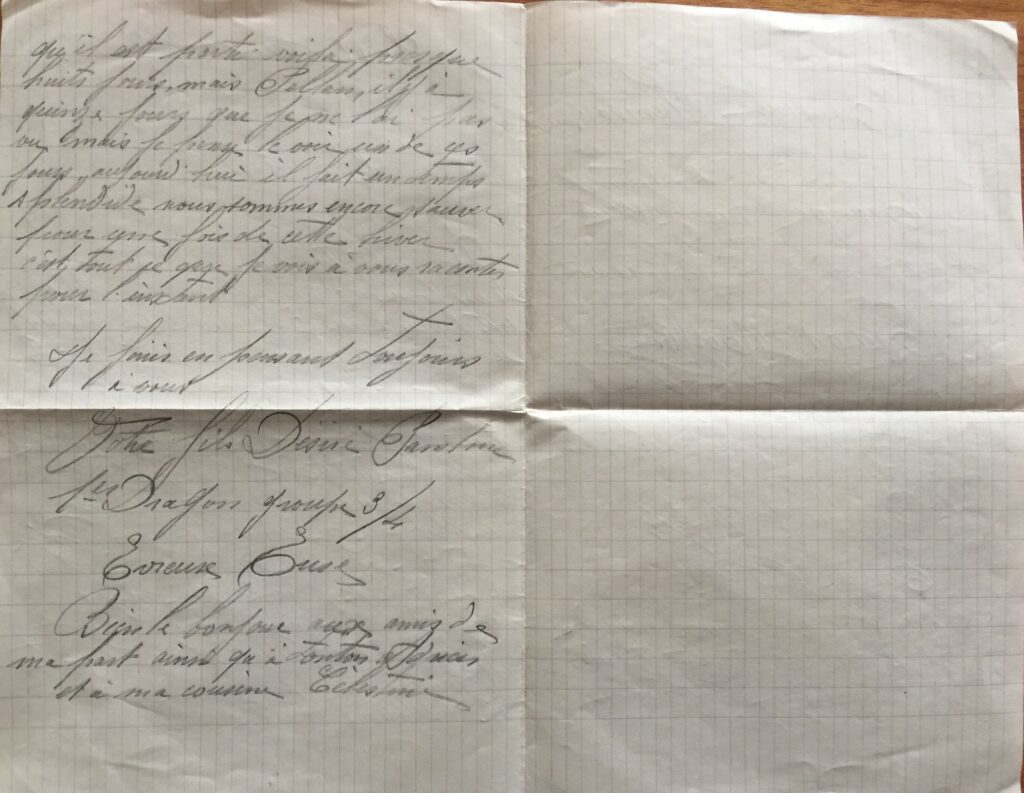 qu'il est parti voila presque
huits jours, mais Pallan, il y à
quinze jours que je ne l'ai pas
vu mais je pense le voir un de ces
jours, aujourd'hui il fait un temps
splendide nous sommes encore sauver
pour une fois de cette hiver
c'est tout ce que je vois à vous raconter
pour l'instant
Je finis en pensant toujours
à vous
Votre fils Désiré
1er Dragon groupe 3/4
Evreux Eure
Bien le bonjour aux amis de
ma part ainsi qu'à tonton
et à ma cousine Célestine